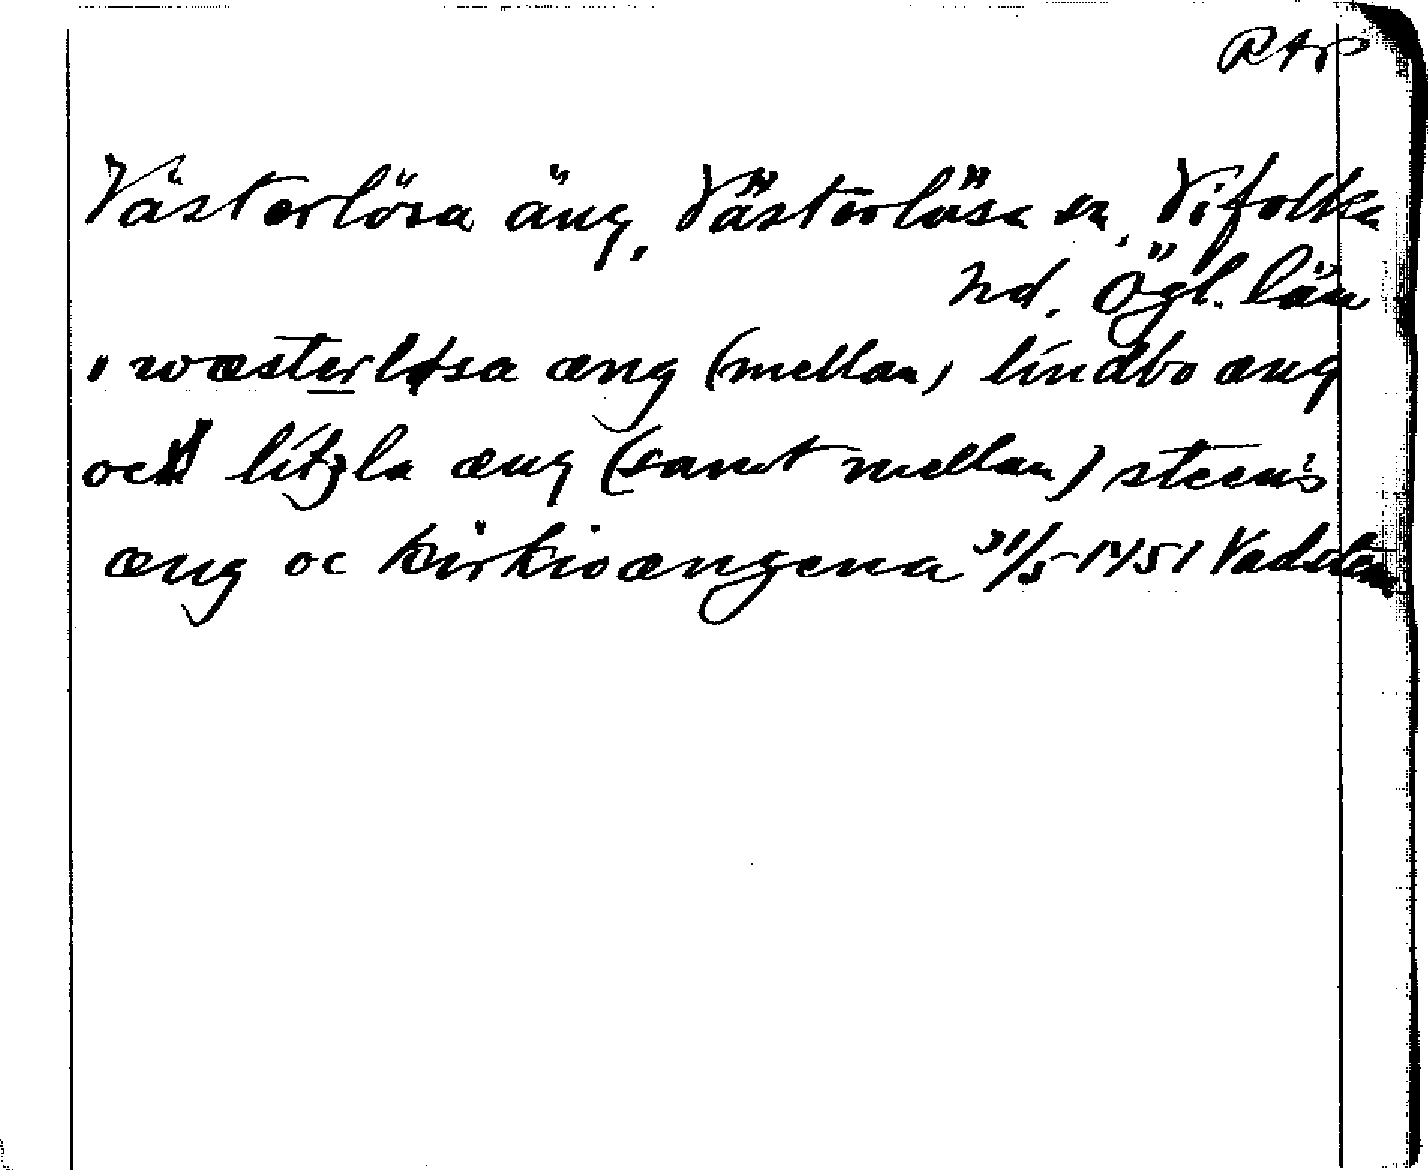 RAp
Västerlösa äng, Västerlösa sn, Vifolka
hd, Ögl. län
i wæsterløsa æng (mellan) lindbo æng
och litzla æng (samt mellan) steens
æng oc kirkioængena 31/5 1451 Vadstena